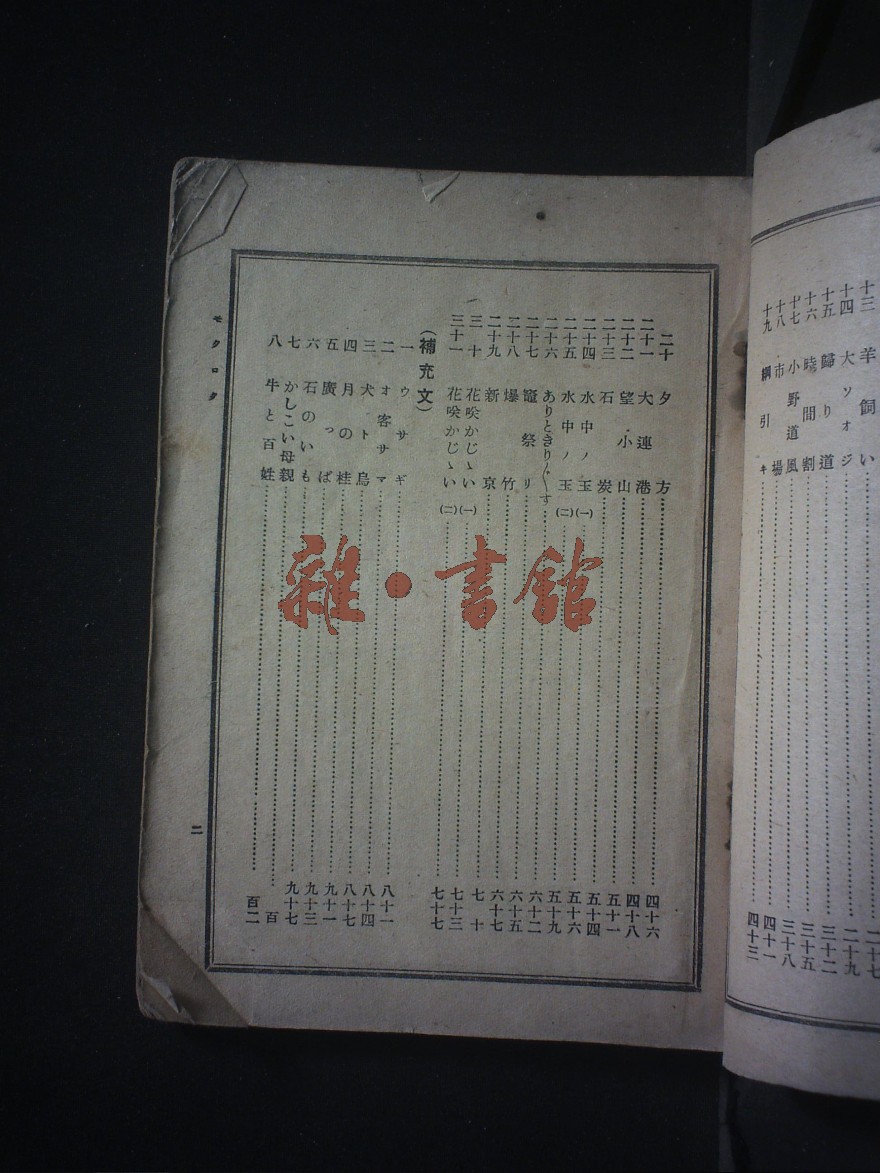 十三 羊飼い 二十七
十四 大ソオジ 二十九
十五 歸り道 三十二
十六 時間割 三十五
十七 小野道風 三十八
十八 市場 四十一
十九 綱引キ 四十三
二十 夕方 四十六
二十一 大連港 四十八
二十二 望小山 五十一
二十三 石炭 五十四
二十四 水中ノ玉(一) 五十六
二十五 水中ノ玉(二) 五十九
二十六 ありときり〲す 六十二
二十七 竈祭リ 六十五
二十八 爆竹 六十七
二十九 新京 七十
三十 花咲かじゝい(一) 七十三
三十一 花咲かじゝい(二) 七十七
(補充文)
一 ウサギ 八十一
二 オ客サマ 八十四
三 犬ト烏 八十七
四 月の桂 九十一
五 廣っぱ 九十三
六 石のいも 九十七
七 かしこい母親 百
八 牛と百姓 百二
モクロク
二
雜·書館